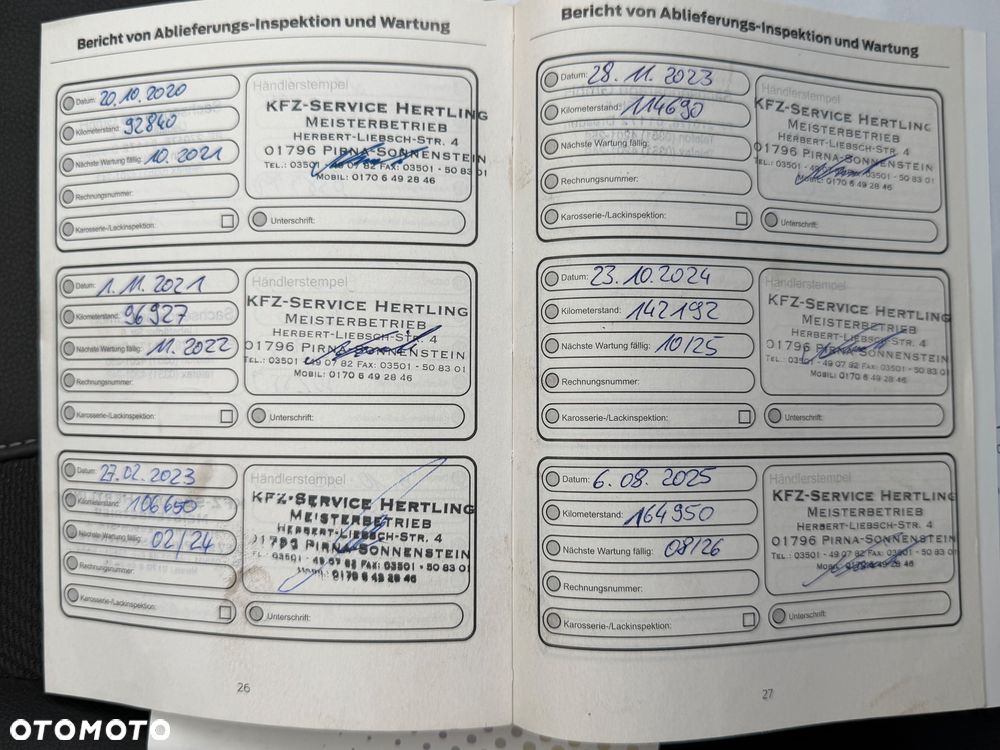 Bericht von Ablieferungs-Inspektion und Wartung
Datum: 20.10.2020
Kilometerstand: 92840
Nächste Wartung fällig: 10.2021
Rechnungsnummer:
Karosserie-/Lackinspektion:
Händlerstempel
KFZ-SERVICE HERTLING
MEISTERBETRIEB
HERBERT-LIEBSCH-STR. 4
01796 PIRNA-SONNENSTEIN
TEL.: 03501 - 49 07 82 FAX: 03501 - 50 83 01
MOBIL: 0170 6 49 28 46
Unterschrift:
Datum: 1.11.2021
Kilometerstand: 96927
Nächste Wartung fällig: 11.2022
Rechnungsnummer:
Karosserie-/Lackinspektion:
Händlerstempel
KFZ-SERVICE HERTLING
MEISTERBETRIEB
HERBERT-LIEBSCH-STR. 4
01796 PIRNA-SONNENSTEIN
TEL.: 03501 - 49 07 82 FAX: 03501 - 50 83 01
MOBIL: 0170 6 49 28 46
Unterschrift:
Datum: 27.02.2023
Kilometerstand: 106650
Nächste Wartung fällig: 02/24
Rechnungsnummer:
Karosserie-/Lackinspektion:
Händlerstempel
KFZ-SERVICE HERTLING
MEISTERBETRIEB
HERBERT-LIEBSCH-STR. 4
01796 PIRNA-SONNENSTEIN
03501 - 49 07 82 FAX: 03501 - 50 83 01
MOBIL: 0170 6 49 28 46
Unterschrift:
26
Bericht von Ablieferungs-Inspektion und Wartung
Datum: 28.11.2023
Kilometerstand: 114690
Nächste Wartung fällig:
Rechnungsnummer:
Karosserie-/Lackinspektion:
Händlerstempel
KFZ-SERVICE HERTLING
MEISTERBETRIEB
HERBERT-LIEBSCH-STR. 4
01796 PIRNA-SONNENSTEIN
TEL.: 03501 - 49 07 82 FAX: 03501 - 50 83 01
MOBIL: 0170 6 49 28 46
Unterschrift:
Datum: 23.10.2024
Kilometerstand: 142192
Nächste Wartung fällig: 10/25
Rechnungsnummer:
Karosserie-/Lackinspektion:
Händlerstempel
KFZ-SERVICE HERTLING
MEISTERBETRIEB
HERBERT-LIEBSCH-STR. 4
01796 PIRNA-SONNENSTEIN
TEL.: 03501 - 49 07 82 FAX: 03501 - 50 83 01
MOBIL: 0170 6 49 28 46
Unterschrift:
Datum: 6.08.2025
Kilometerstand: 164950
Nächste Wartung fällig: 08/26
Rechnungsnummer:
Karosserie-/Lackinspektion:
Händlerstempel
KFZ-SERVICE HERTLING
MEISTERBETRIEB
HERBERT-LIEBSCH-STR. 4
01796 PIRNA-SONNENSTEIN
TEL.: 03501 - 49 07 82 FAX: 03501 - 50 83 01
MOBIL: 0170 6 49 28 46
Unterschrift:
27
OTOMOTO